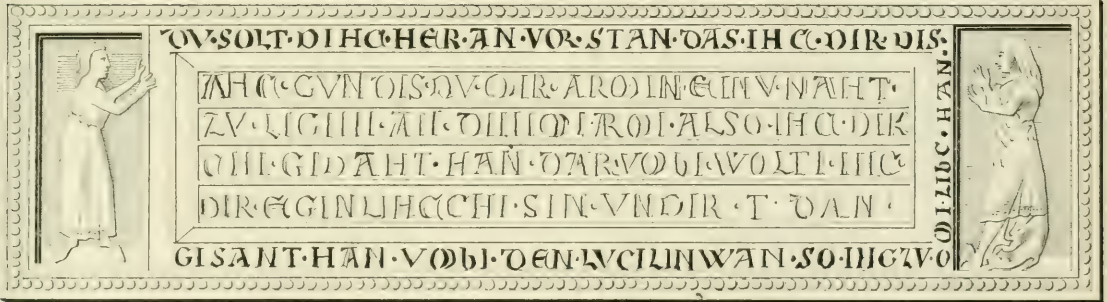 DV·SOLT·DIHC·HER·AN·VOR·STAN·DAS·IHC·DIR·DIS·
AHC·GVNDIS·DV·MIR·ARMIN·EINV·NAHT·
ZV·LIGINI·AN·DINIM·ARMI·ALSO·IHC·DIK
GIDAHT·HAN·DAR·VMBI·WOLTI·IHC
DIR·EGINLIHCCHI·SIN·VNDIR·T·DAN·
GISANT·HAN·VMBI·DEN·LVCILIN WAN·SO·IHC ZV·O
MI·LIBC·HAN·